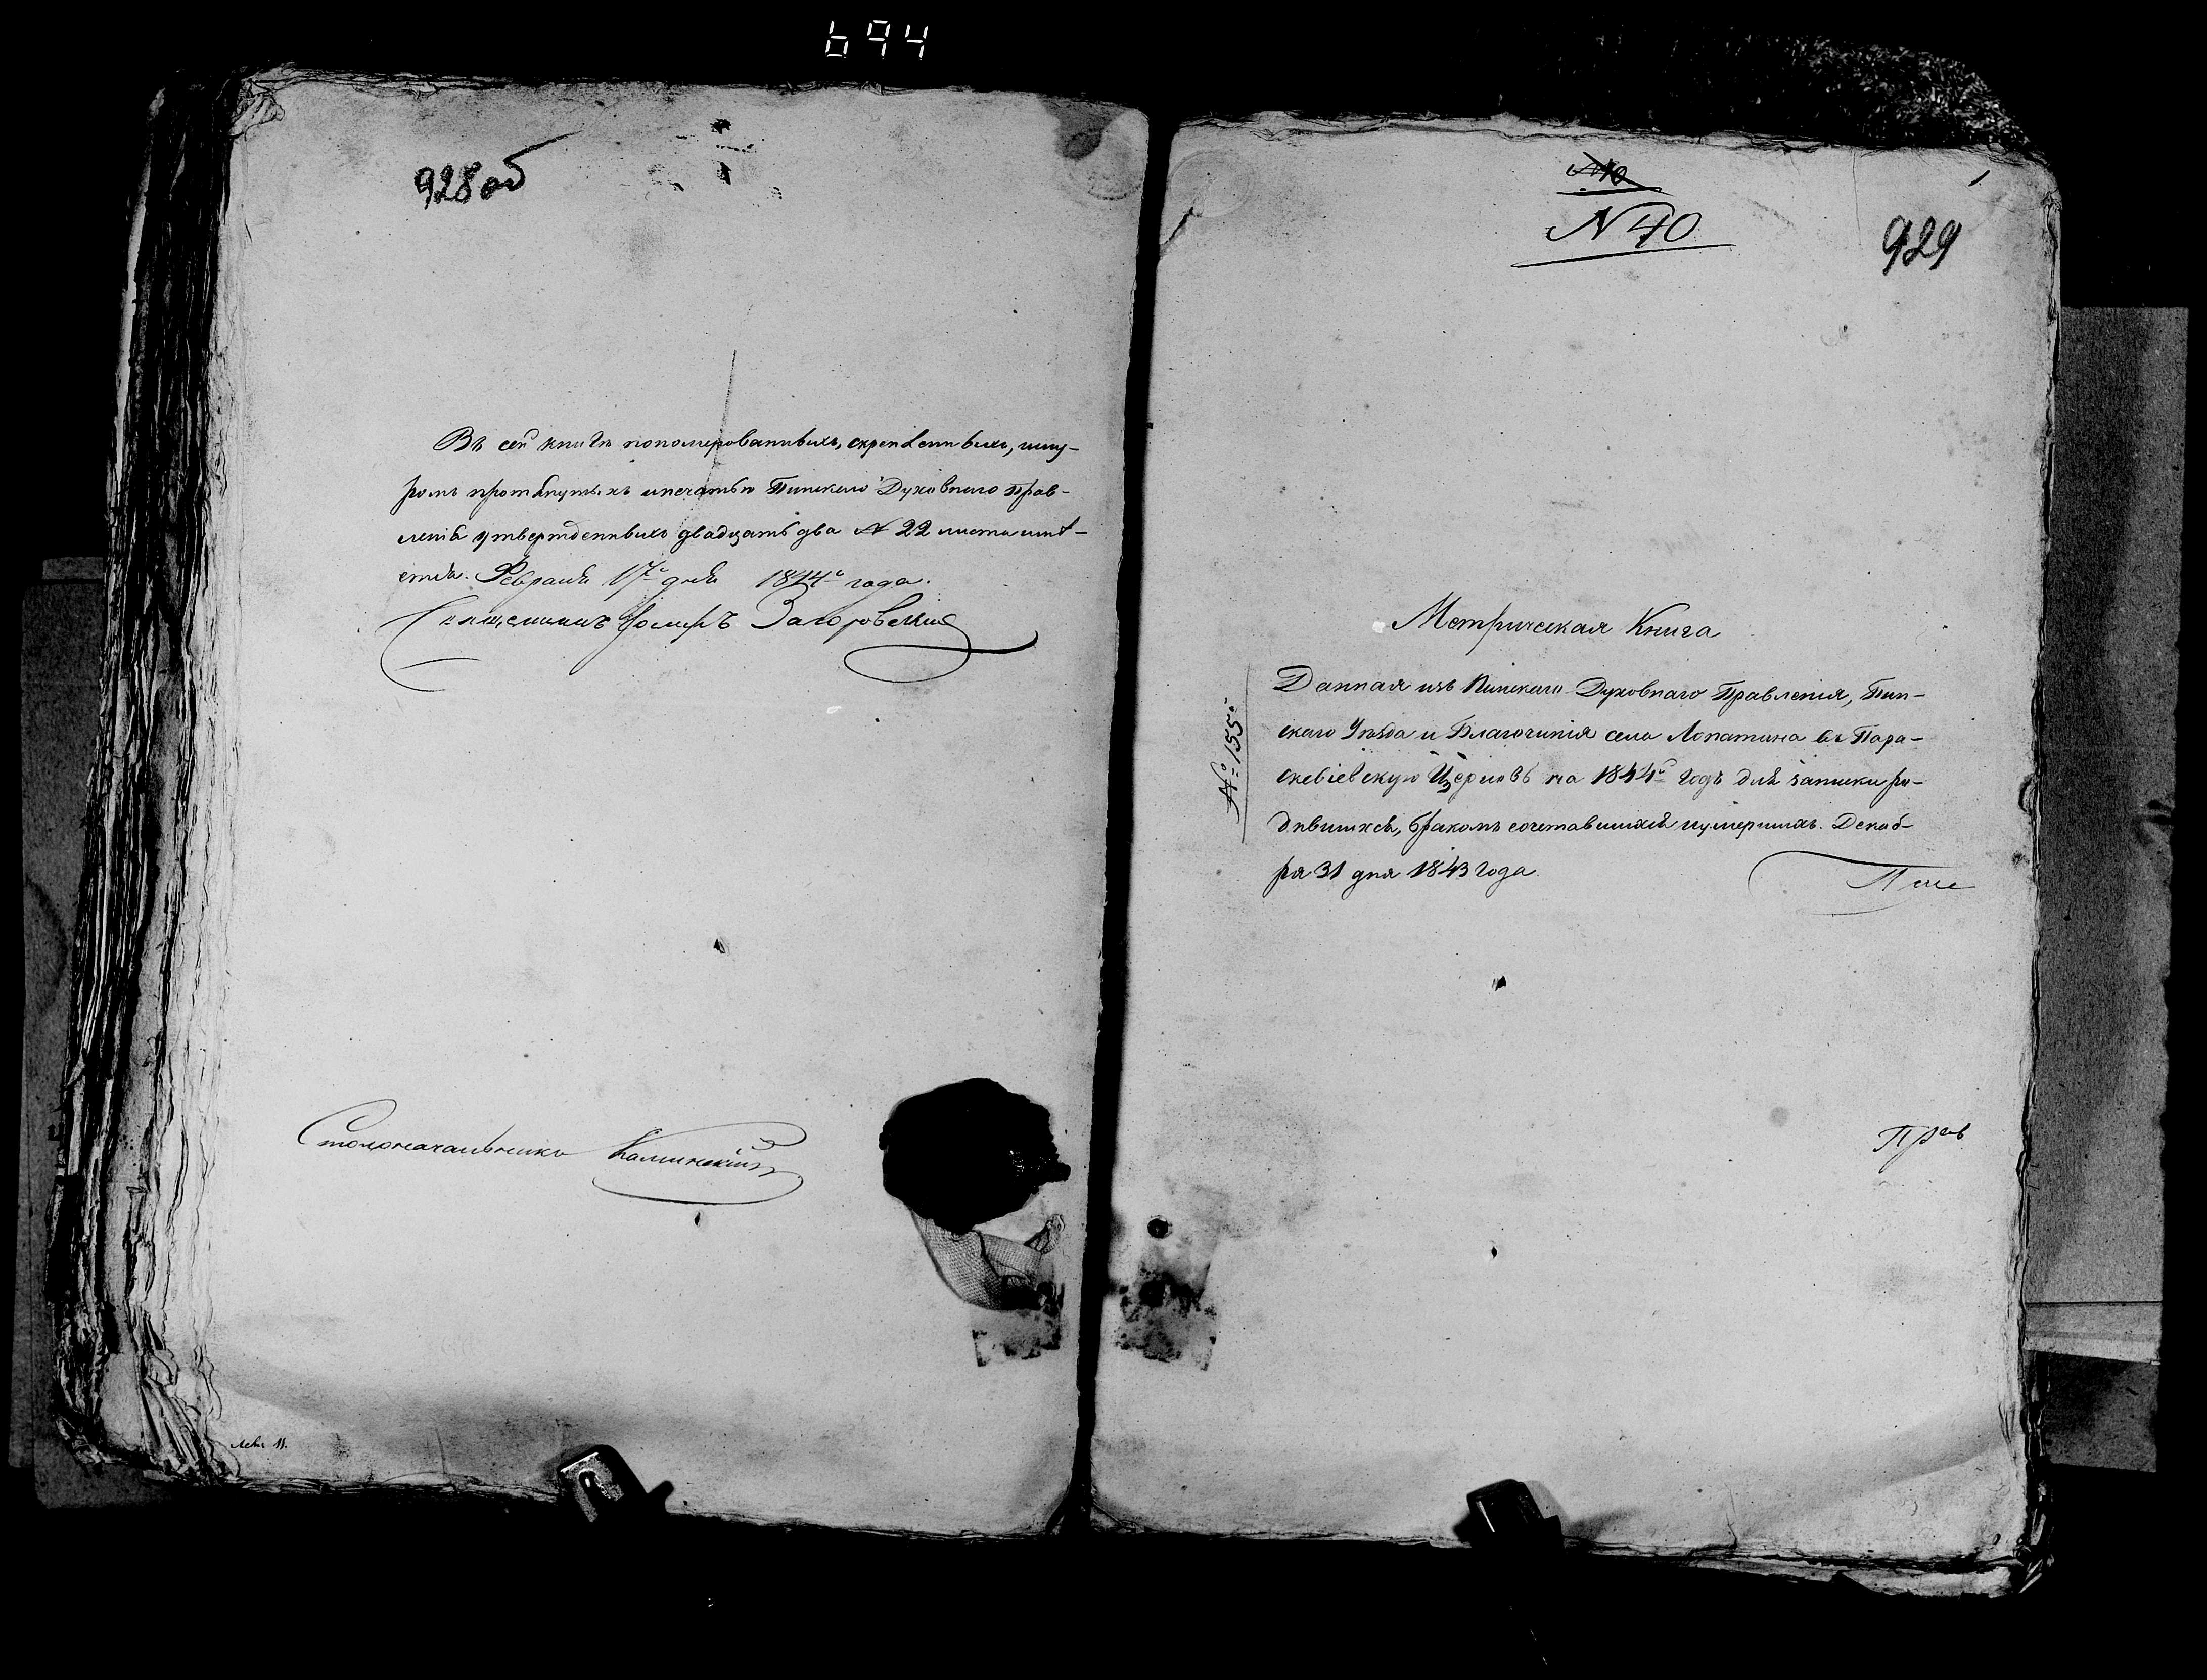 694
928об
Въ сей книгѣ пономерованныхъ, скрепленныхъ, шну-
ромъ протянутыхъ и печатью Пинскаго Духовнаго Прав-
ленія утвержденныхъ двадцать два № 22 листа имѣ-
ется. Февраля 17 дня 1844 года.
Священникъ Загоровскій
Столоначальникъ Калинскій
1
N 40
929
Метрическая Книга
Данная изъ Пинскаго Духовнаго Правленія, Пин-
скаго Уѣзда и Благочинія села Лопатина въ Пара-
скевіевскую Церковь на 1844й годъ для записки ро-
дившихся, бракомъ сочетавшихся и умершихъ. Декаб-
ря 31 дня 1843 года
№ 155
Прав